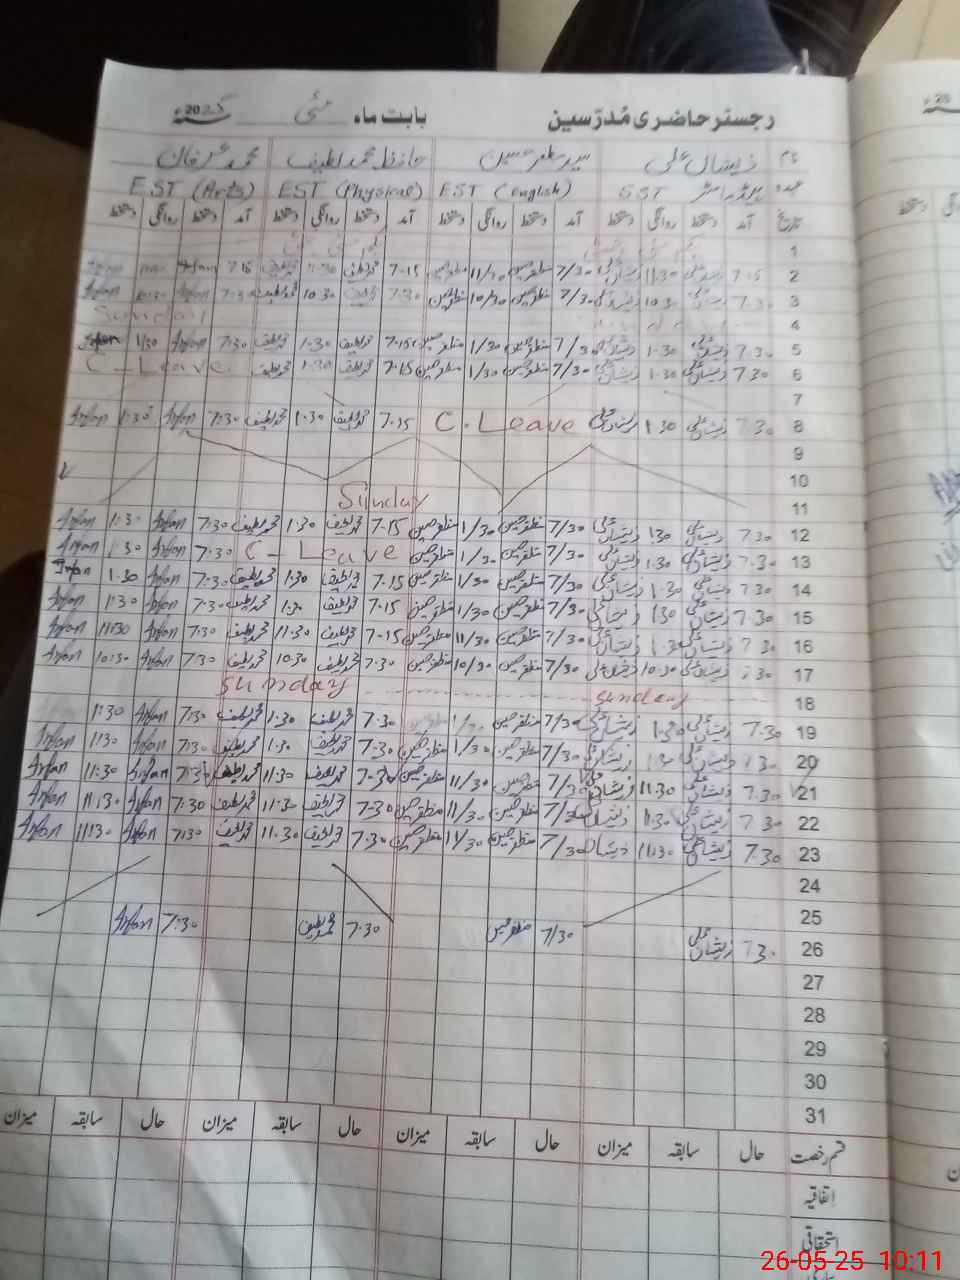 رجسٹر حاضری مُدرّسین بابت ماہ مئی سنہ 2025ء
نام ذیشان علی سید مظفر حسین حافظ محمد لطیف محمد عرفان
عہدہ ہیڈ ماسٹر SST EST (English) EST (Physical) EST (Arts)
تاریخ آمد دستخط روانگی دستخط آمد دستخط روانگی دستخط آمد دستخط روانگی دستخط آمد دستخط روانگی دستخط
1
2 7.15 ذیشان علی 11.30 ذیشان علی 7/30 مظفر حسین 11/30 مظفر حسین 7.15 محمد لطیف 11.30 محمد لطیف 7.15 Arfan
3 7.30 ذیشان علی 10.30 ذیشان علی 7/30 مظفر حسین 10/30 مظفر حسین 7.30 محمد لطیف 10.30 محمد لطیف 7:30 Arfan 10:30 Arfan
4 Sunday
5 7.30 ذیشان علی 1.30 ذیشان علی 7/30 مظفر حسین 1/30 مظفر حسین 7.15 محمد لطیف 1.30 محمد لطیف 7:30 Arfan 1:30 Arfan
6 7.30 ذیشان علی 1.30 ذیشان علی 7/30 مظفر حسین 1/30 مظفر حسین 7.15 محمد لطیف 1.30 محمد لطیف C-Leave
7
8 7.30 ذیشان علی 1.30 ذیشان علی C. Leave 7.15 محمد لطیف 1.30 محمد لطیف 7:30 Arfan 1:30 Arfan
9
10
11 Sunday
12 7.30 ذیشان علی 1.30 ذیشان علی 7/30 مظفر حسین 1/30 مظفر حسین 7.15 محمد لطیف 1.30 محمد لطیف 7:30 Arfan 1:30 Arfan
13 7.30 ذیشان علی 1.30 ذیشان علی 7/30 مظفر حسین 1/30 مظفر حسین C-Leave 7:30 Arfan 1:30 Arfan
14 7.30 ذیشان علی 1.30 ذیشان علی 7/30 مظفر حسین 1/30 مظفر حسین 7.15 محمد لطیف 1.30 محمد لطیف 7:30 Arfan 1:30 Arfan
15 7.30 ذیشان علی 1.30 ذیشان علی 7/30 مظفر حسین 1/30 مظفر حسین 7.15 محمد لطیف 1.30 محمد لطیف 7:30 Arfan 11:30 Arfan
16 7.30 ذیشان علی 1.30 ذیشان علی 7/30 مظفر حسین 11/30 مظفر حسین 7.15 محمد لطیف 11.30 محمد لطیف 7:30 Arfan 11:30 Arfan
17 7.30 ذیشان علی 10.30 ذیشان علی 7/30 مظفر حسین 10/30 مظفر حسین 7.30 محمد لطیف 10.30 محمد لطیف 7:30 Arfan 10:30 Arfan
18 Sunday Sunday
19 7.30 ذیشان علی 1.30 ذیشان علی 7/30 مظفر حسین 7.30 محمد لطیف 1.30 محمد لطیف 7:30 Arfan 11:30
20 7.30 ذیشان علی 1.30 ذیشان علی 7/30 مظفر حسین 1/30 مظفر حسین 7.30 محمد لطیف 1.30 محمد لطیف 7:30 Arfan 11:30 Arfan
21 7.30 ذیشان علی 11.30 ذیشان علی 7/30 مظفر حسین 11/30 مظفر حسین 7.30 محمد لطیف 11.30 محمد لطیف 7:30 Arfan 11:30 Arfan
22 7.30 ذیشان علی 11.30 ذیشان 7/30 مظفر حسین 11/30 مظفر حسین 7.30 محمد لطیف 11.30 محمد لطیف 7:30 Arfan 11:30 Arfan
23 7.30 ذیشان علی 11.30 ذیشان 7/30 مظفر حسین 11/30 مظفر حسین 7.30 محمد لطیف 11.30 محمد لطیف 7:30 Arfan 11:30 Arfan
24
25
26 7.30 ذیشان علی 7/30 مظفر حسین 7.30 محمد لطیف 7:30 Arfan
27
28
29
30
31
قسم رخصت حال سابقہ میزان حال سابقہ میزان حال سابقہ میزان حال سابقہ میزان
اتفاقیہ
استحقاقی
26-05-25 10:11